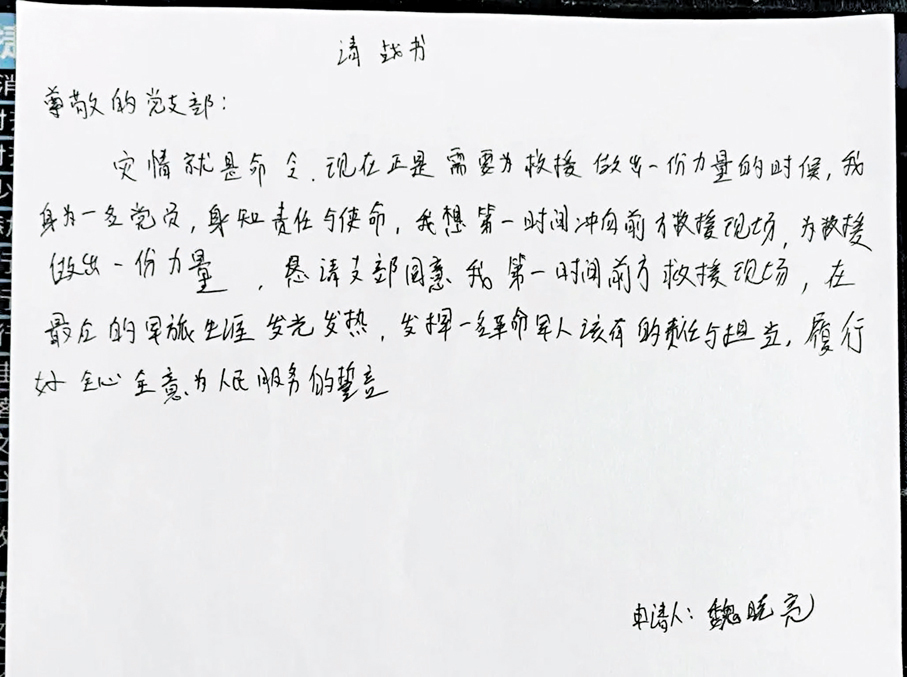 请战书
尊敬的党支部：
灾情就是命令，现在正是需要为救援做出一份力量的时候，我
身为一名党员，身知责任与使命，我想第一时间冲向前方救援现场，为救援
做出一份力量，恳请支部同意我第一时间前方救援现场，在
最后的军旅生涯发光发热，发挥一名革命军人该有的责任与担当，履行
好全心全意为人民服务的誓言
申请人：魏晓亮